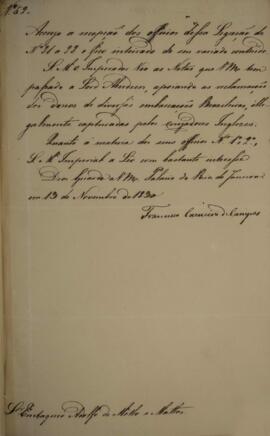 Nº 52.
Accuso a recepção dos officios dessa Legação de
Nº 21 a 22 e fico inteirado do seu variado conteúdo.
S. M. o Imperador vio as Notas que V. Mce tem
passado a Lord Aberdeen, apoiando as reclamações
dos donos de diversas embarcações Brasileiras, ille-
galmente capturadas pelos cruzadores Inglezes.
Quanto á materia dos seus officios Nº
S. M. Imperial a Leo com bastante interesse.
Deos Guarde a V. Mce Palacio do Rio de Janeiro
em 13 de Novembro de 1830
Francisco Carneiro de Campos
Snr Eustaquio Adolfo de Mello e Mattos